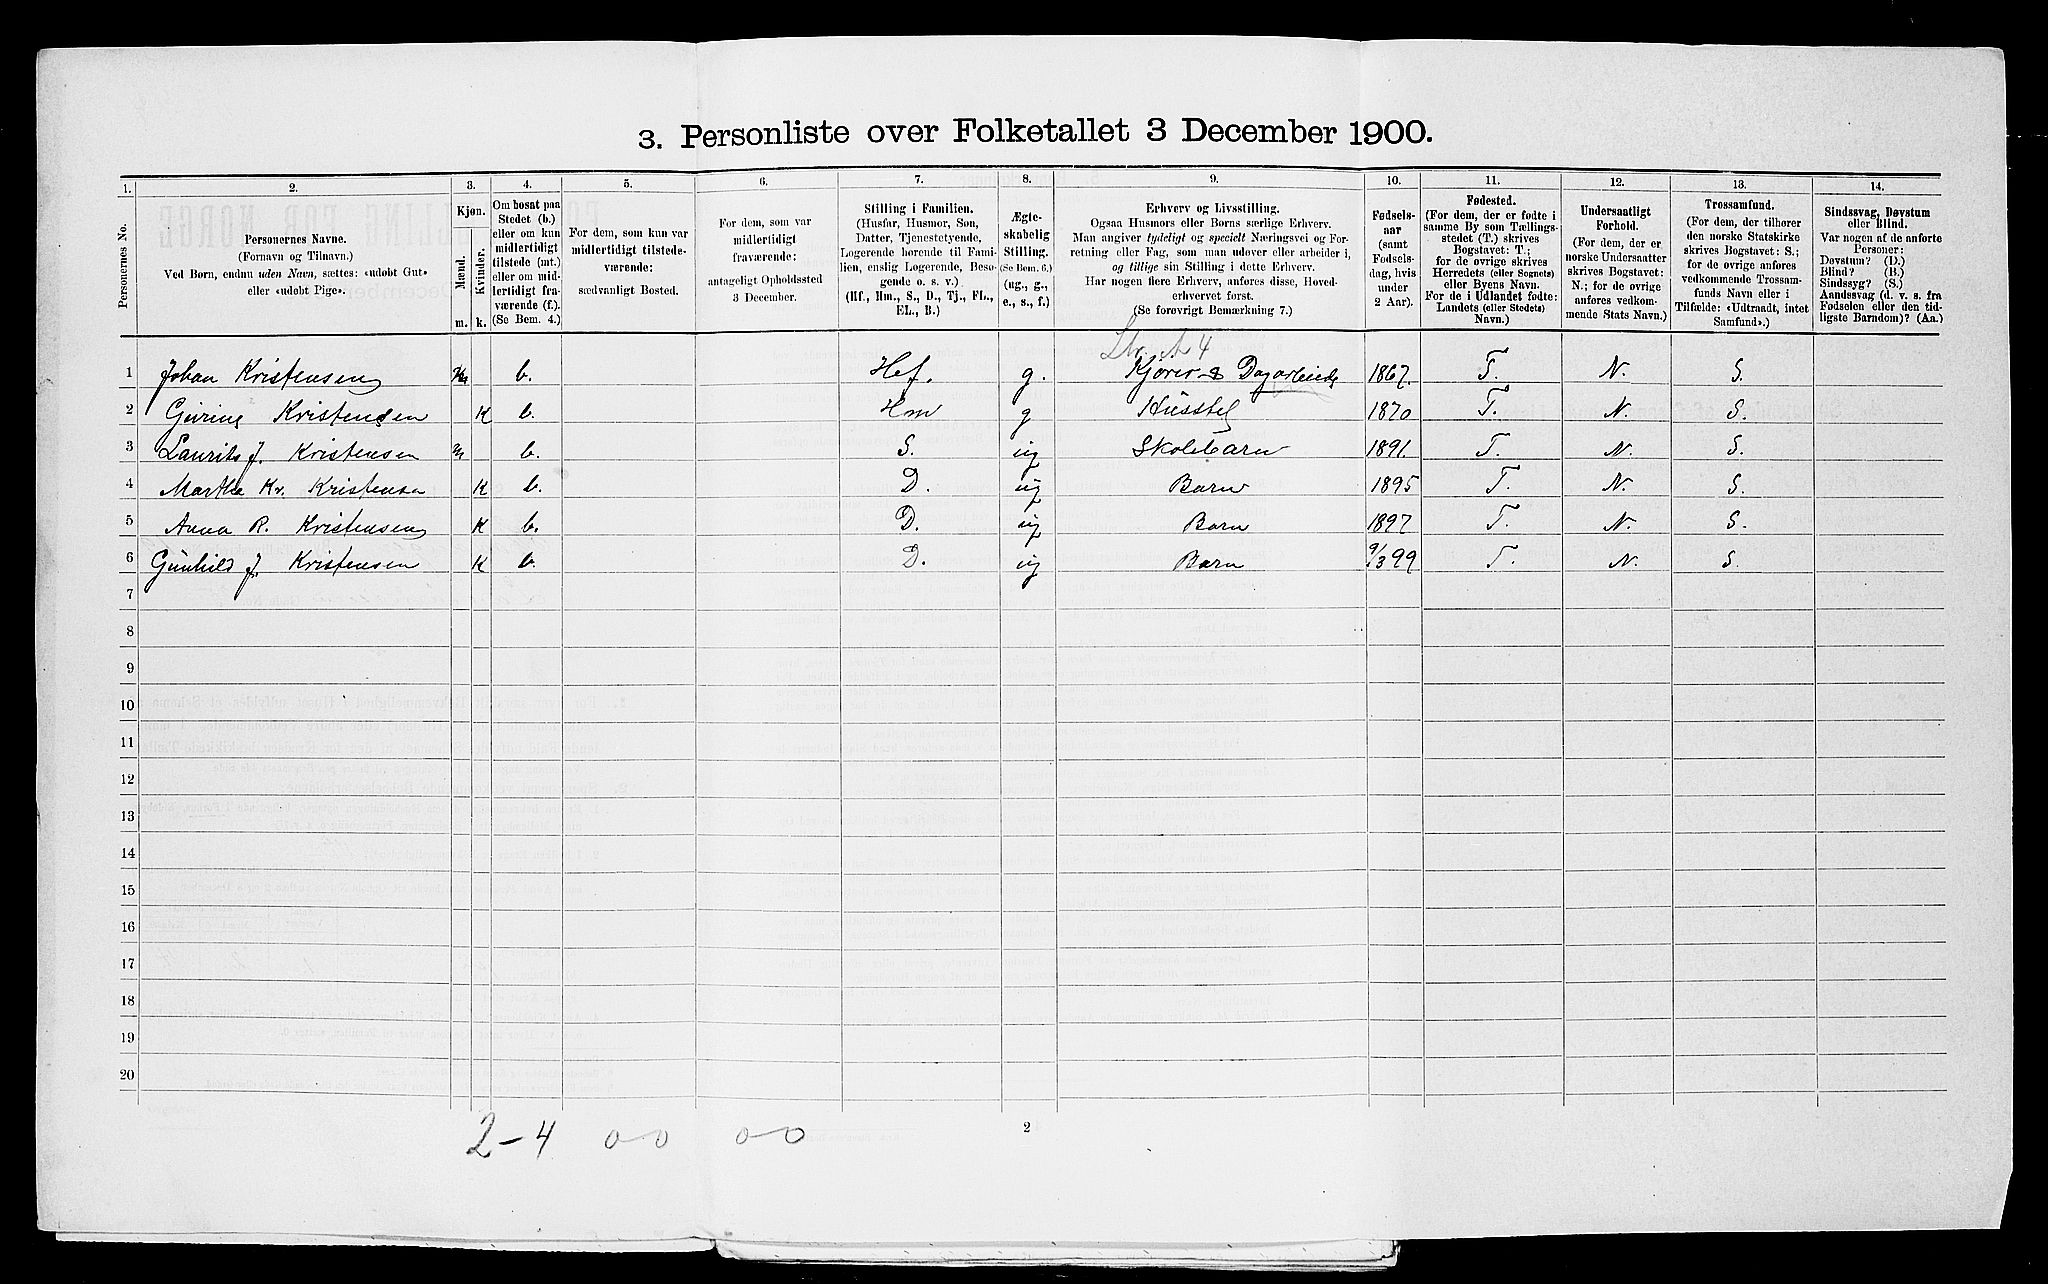 3. Personliste over Folketallet 3 December 1900.
1. 2. 3. 4. 5. 6. 7. 8. 9. 10. 11. 12. 13. 14.
Personernes No.
Personernes Navne.
(Fornavn og Tilnavn.)
Ved Børn, endnu uden Navn, sættes: «udøbt Gut»
eller «udøbt Pige».
Kjøn.
Mænd.
Kvinder.
m. k.
Om bosat paa
Stedet (b.)
eller om kun
midlertidigt
tilstede (mt.)
eller om mid-
lertidigt fra-
værende (f.).
(Se Bem. 4.)
For dem, som kun var
midlertidigt tilstede-
værende:
sædvanligt Bosted.
For dem, som var
midlertidigt
fraværende:
antageligt Opholdssted
3 December.
Stilling i Familien.
(Husfar, Husmor, Søn,
Datter, Tjenestetyende,
Logerende hørende til Fami-
lien, enslig Logerende, Besø-
gende o. s. v.)
(Hf., Hm., S., D., Tj., FL.,
EL., B.)
Ægte-
skabelig
Stilling.
(Se Bem. 6.)
(ug., g.,
e., s., f.)
Erhverv og Livsstilling.
Ogsaa Husmors eller Børns særlige Erhverv.
Man angiver tydeligt og specielt Næringsvei og For-
retning eller Fag, som man udøver eller arbeider i,
og tillige sin Stilling i dette Erhverv.
Har nogen flere Erhverv, anføres disse, Hoved-
erhvervet først.
(Se forøvrigt Bemærkning 7.)
Fødsels-
aar
(samt
Fødsels-
dag, hvis
under
2 Aar).
Fødested.
(For dem, der er fødte i
samme By som Tællings-
stedet (T.) skrives
Bogstavet: T.;
for de øvrige skrives
Herredets (eller Sognets)
eller Byens Navn.
For de i Udlandet fødte:
Landets (eller Stedets)
Navn.)
Undersaatligt
Forhold.
(For dem, der er
norske Undersaatter
skrives Bogstavet:
N.; for de øvrige
anføres vedkom-
mende Stats Navn.)
Trossamfund.
(For dem, der tilhører
den norske Statskirke
skrives Bogstavet: S.;
for de øvrige anføres
vedkommende Trossam-
funds Navn eller i
Tilfælde: «Udtraadt, intet
Samfund».)
Sindssvag, Døvstum
eller Blind.
Var nogen af de anførte
Personer:
Døvstum? (D.)
Blind? (B.)
Sindssyg? (S.)
Aandssvag (d. v. s. fra
Fødselen eller den tid-
ligste Barndom)? (Aa.)
1 Johan Kristensen m b. Hf. g. Kjører & Dagarbeide 1867. T. N. S.
2 Gurine Kristensen K b. Hm g Husstel 1870 T. N. S.
3 Laurits J. Kristensen m b. S. ug Skolebarn 1891. T. N. S.
4 Martha Kr. Kristensen K b. D. ug Barn 1895 T. N. S.
5 Anna R. Kristensen K b. D. ug Barn 1897 T. N. S.
6 Gunhild J. Kristensen K b. D. ug Barn 9/3 99 T. N. S.
7
8
9
10
11
12
13
14
15
16
17
18
19
20
2-4 0-0 0-0
2